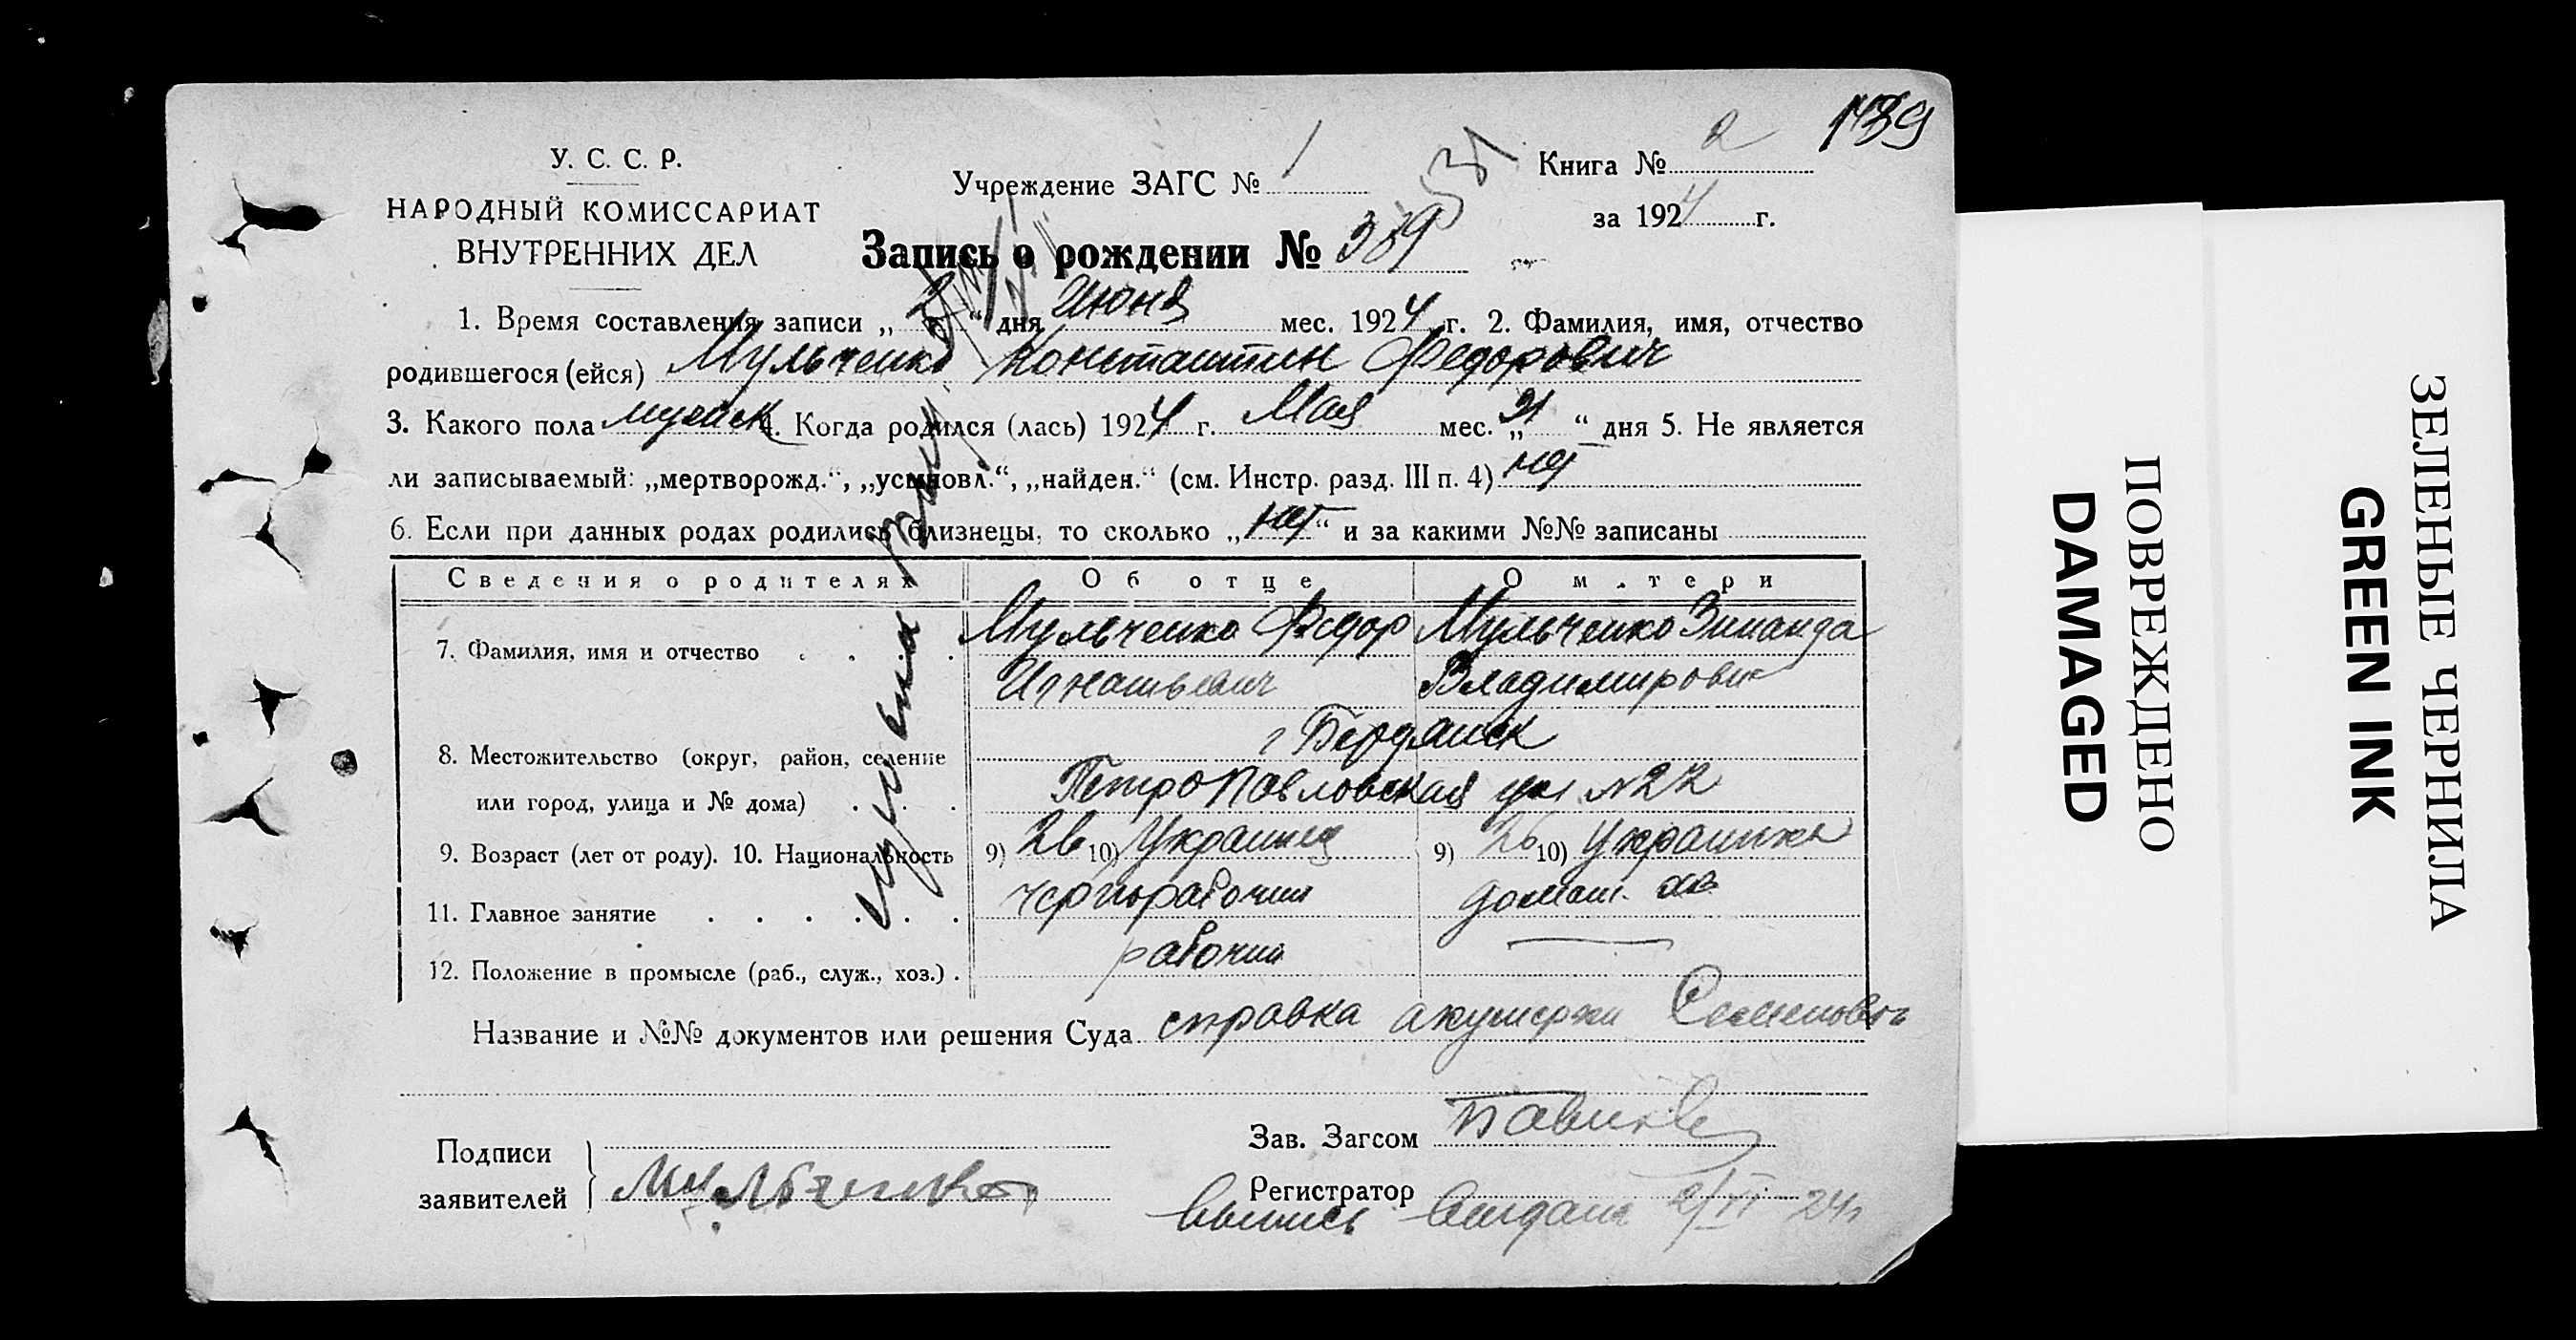 У. С. С. Р.
НАРОДНЫЙ КОМИССАРИАТ
ВНУТРЕННИХ ДЕЛ
Учреждение ЗАГС № 1
Книга № 2
за 1924 г.
Запись о рождении № 389
1. Время составления записи „ 2 “ дня Июня мес. 1924 г. 2. Фамилия, имя, отчество
родившегося (ейся) Мульченко Константин Федорович
3. Какого пола мужск 4. Когда родился (лась) 1924 г. Мая мес. „ 21 “ дня 5. Не является
ли записываемый: „мертворожд.“, „усыновл.“, „найден.“ (см. Инстр. разд. III п. 4) нет
6. Если при данных родах родились близнецы, то сколько „ нет “ и за какими №№ записаны
Сведения о родителях Об отце О матери
7. Фамилия, имя и отчество Мульченко Федор Мульченко Зинаида
Игнатьевич Владимировн
г Бердянск
8. Местожительство (округ, район, селение
или город, улица и № дома) Петропавловская ул № 22
9. Возраст (лет от роду). 10. Национальность 9) 26 10) Украинец 9) 26 10) Украинка
11. Главное занятие чернорабочий домаш. хоз
12. Положение в промысле (раб., служ., хоз.) рабочий —
Название и №№ документов или решения Суда справка акушерки Семеновой
Подписи
заявителей Мульченко
Зав. Загсом
Регистратор
Выпись выдана 2/VI 24 г
ПОВРЕЖДЕНО
DAMAGED
ЗЕЛЕНЫЕ ЧЕРНИЛА
GREEN INK